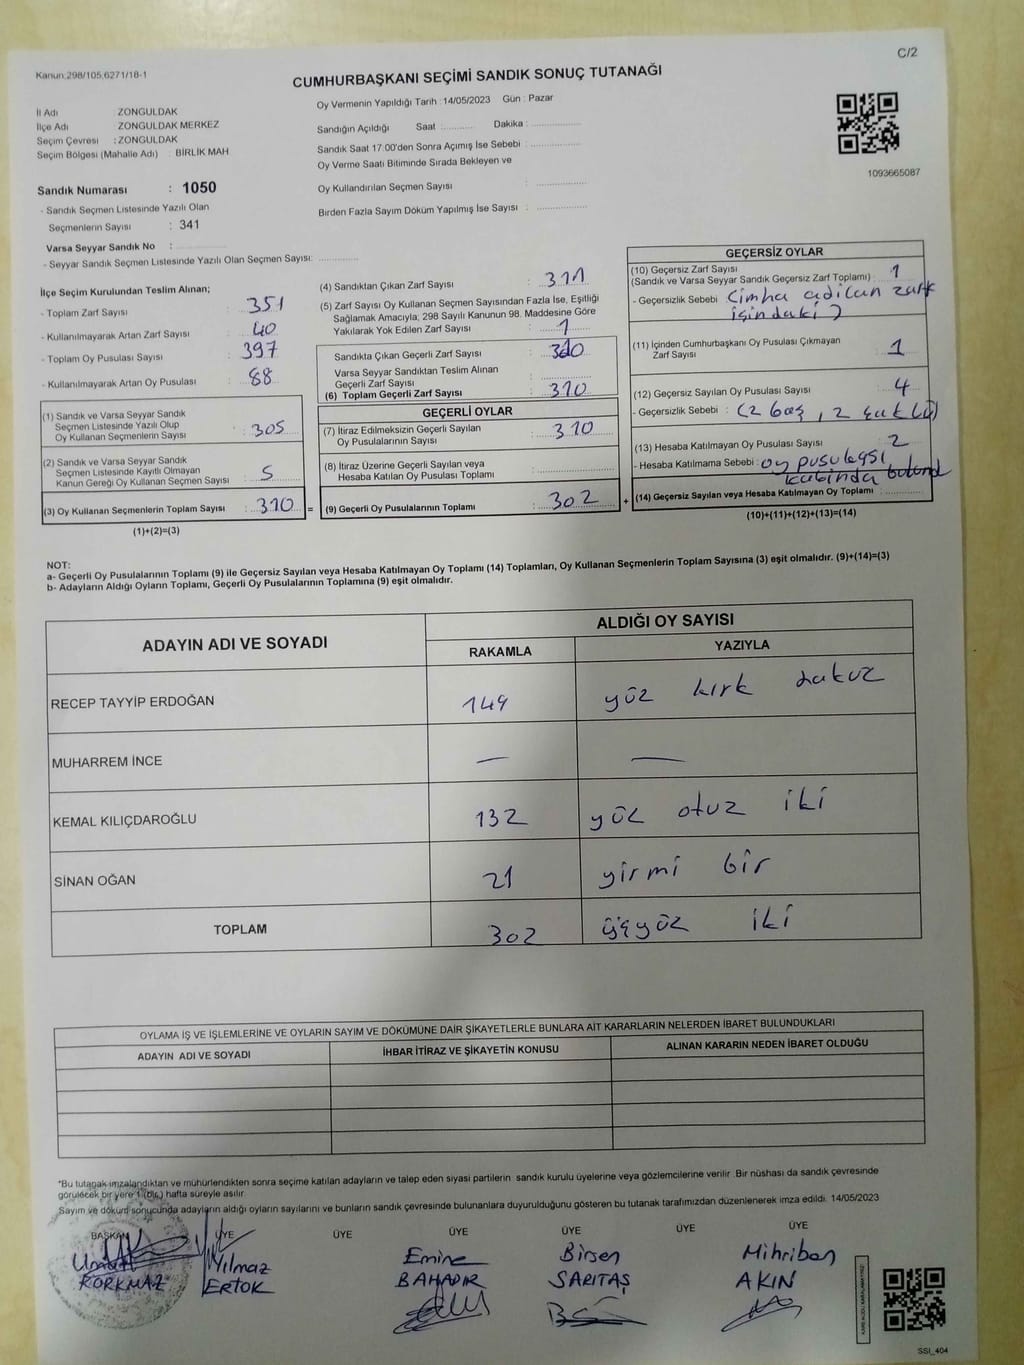 C/2
Kanun.298/105,6271/18-1
CUMHURBAŞKANI SEÇİMİ SANDIK SONUÇ TUTANAĞI
İl Adı ZONGULDAK
İlçe Adı ZONGULDAK MERKEZ
Seçim Çevresi :ZONGULDAK
Seçim Bölgesi (Mahalle Adı) : BİRLİK MAH
Sandık Numarası : 1050
- Sandık Seçmen Listesinde Yazılı Olan
Seçmenlerin Sayısı : 341
Varsa Seyyar Sandık No :
- Seyyar Sandık Seçmen Listesinde Yazılı Olan Seçmen Sayısı:
Oy Vermenin Yapıldığı Tarih :14/05/2023 Gün : Pazar
Sandığın Açıldığı Saat : Dakika :
Sandık Saat 17.00'den Sonra Açımış İse Sebebi :
Oy Verme Saati Bitiminde Sırada Bekleyen ve
Oy Kullandırılan Seçmen Sayısı :
Birden Fazla Sayım Döküm Yapılmış İse Sayısı :
1093665087
İlçe Seçim Kurulundan Teslim Alınan;
- Toplam Zarf Sayısı : 351
- Kullanılmayarak Artan Zarf Sayısı : 40
- Toplam Oy Pusulası Sayısı : 397
- Kullanılmayarak Artan Oy Pusulası : 88
(1) Sandık ve Varsa Seyyar Sandık
Seçmen Listesinde Yazılı Olup
Oy Kullanan Seçmenlerin Sayısı : 305
(2) Sandık ve Varsa Seyyar Sandık
Seçmen Listesinde Kayıtlı Olmayan
Kanun Gereği Oy Kullanan Seçmen Sayısı : 5
(3) Oy Kullanan Seçmenlerin Toplam Sayısı : 310 =
(1)+(2)=(3)
(4) Sandıktan Çıkan Zarf Sayısı : 311
(5) Zarf Sayısı Oy Kullanan Seçmen Sayısından Fazla İse, Eşitliği
Sağlamak Amacıyla; 298 Sayılı Kanunun 98. Maddesine Göre
Yakılarak Yok Edilen Zarf Sayısı : 1
Sandıkta Çıkan Geçerli Zarf Sayısı : 310
Varsa Seyyar Sandıktan Teslim Alınan
Geçerli Zarf Sayısı :
(6) Toplam Geçerli Zarf Sayısı : 310
GEÇERLİ OYLAR
(7) İtiraz Edilmeksizin Geçerli Sayılan
Oy Pusulalarının Sayısı : 310
(8) İtiraz Üzerine Geçerli Sayılan veya
Hesaba Katılan Oy Pusulası Toplamı :
(9) Geçerli Oy Pusulalarının Toplamı : 302 +
GEÇERSİZ OYLAR
(10) Geçersiz Zarf Sayısı
(Sandık ve Varsa Seyyar Sandık Geçersiz Zarf Toplamı) : 1
- Geçersizlik Sebebi : (imha edilen zarf
içindeki)
(11) İçinden Cumhurbaşkanı Oy Pusulası Çıkmayan
Zarf Sayısı : 1
(12) Geçersiz Sayılan Oy Pusulası Sayısı : 4
- Geçersizlik Sebebi : (2 boş, 2 çiftli)
(13) Hesaba Katılmayan Oy Pusulası Sayısı : 2
- Hesaba Katılmama Sebebi : oy pusulası
kabinda bulund
(14) Geçersiz Sayılan veya Hesaba Katılmayan Oy Toplamı :
(10)+(11)+(12)+(13)=(14)
NOT:
a- Geçerli Oy Pusulalarının Toplamı (9) ile Geçersiz Sayılan veya Hesaba Katılmayan Oy Toplamı (14) Toplamları, Oy Kullanan Seçmenlerin Toplam Sayısına (3) eşit olmalıdır. (9)+(14)=(3)
b- Adayların Aldığı Oyların Toplamı, Geçerli Oy Pusulalarının Toplamına (9) eşit olmalıdır.
ADAYIN ADI VE SOYADI
ALDIĞI OY SAYISI
RAKAMLA YAZIYLA
RECEP TAYYİP ERDOĞAN 149 yüz kırk dokuz
MUHARREM İNCE — —
KEMAL KILIÇDAROĞLU 132 yüz otuz iki
SİNAN OĞAN 21 yirmi bir
TOPLAM 302 üçyüz iki
OYLAMA İŞ VE İŞLEMLERİNE VE OYLARIN SAYIM VE DÖKÜMÜNE DAİR ŞİKAYETLERLE BUNLARA AİT KARARLARIN NELERDEN İBARET BULUNDUKLARI
ADAYIN ADI VE SOYADI İHBAR İTİRAZ VE ŞİKAYETİN KONUSU ALINAN KARARIN NEDEN İBARET OLDUĞU
*Bu tutanak imzalandıktan ve mühürlendikten sonra seçime katılan adayların ve talep eden siyasi partilerin sandık kurulu üyelerine veya gözlemcilerine verilir. Bir nüshası da sandık çevresinde
görülecek bir yere 1 (bir) hafta süreyle asılır.
Sayım ve döküm sonucunda adayların aldığı oyların sayılarını ve bunların sandık çevresinde bulunanlara duyurulduğunu gösteren bu tutanak tarafımızdan düzenlenerek imza edildi. 14/05/2023
BAŞKAN ÜYE ÜYE ÜYE ÜYE ÜYE ÜYE
Umut Yılmaz Emine Birsen Mihriban
KORKMAZ ERTOK BAHADIR SARITAŞ AKIN
SSİ_404